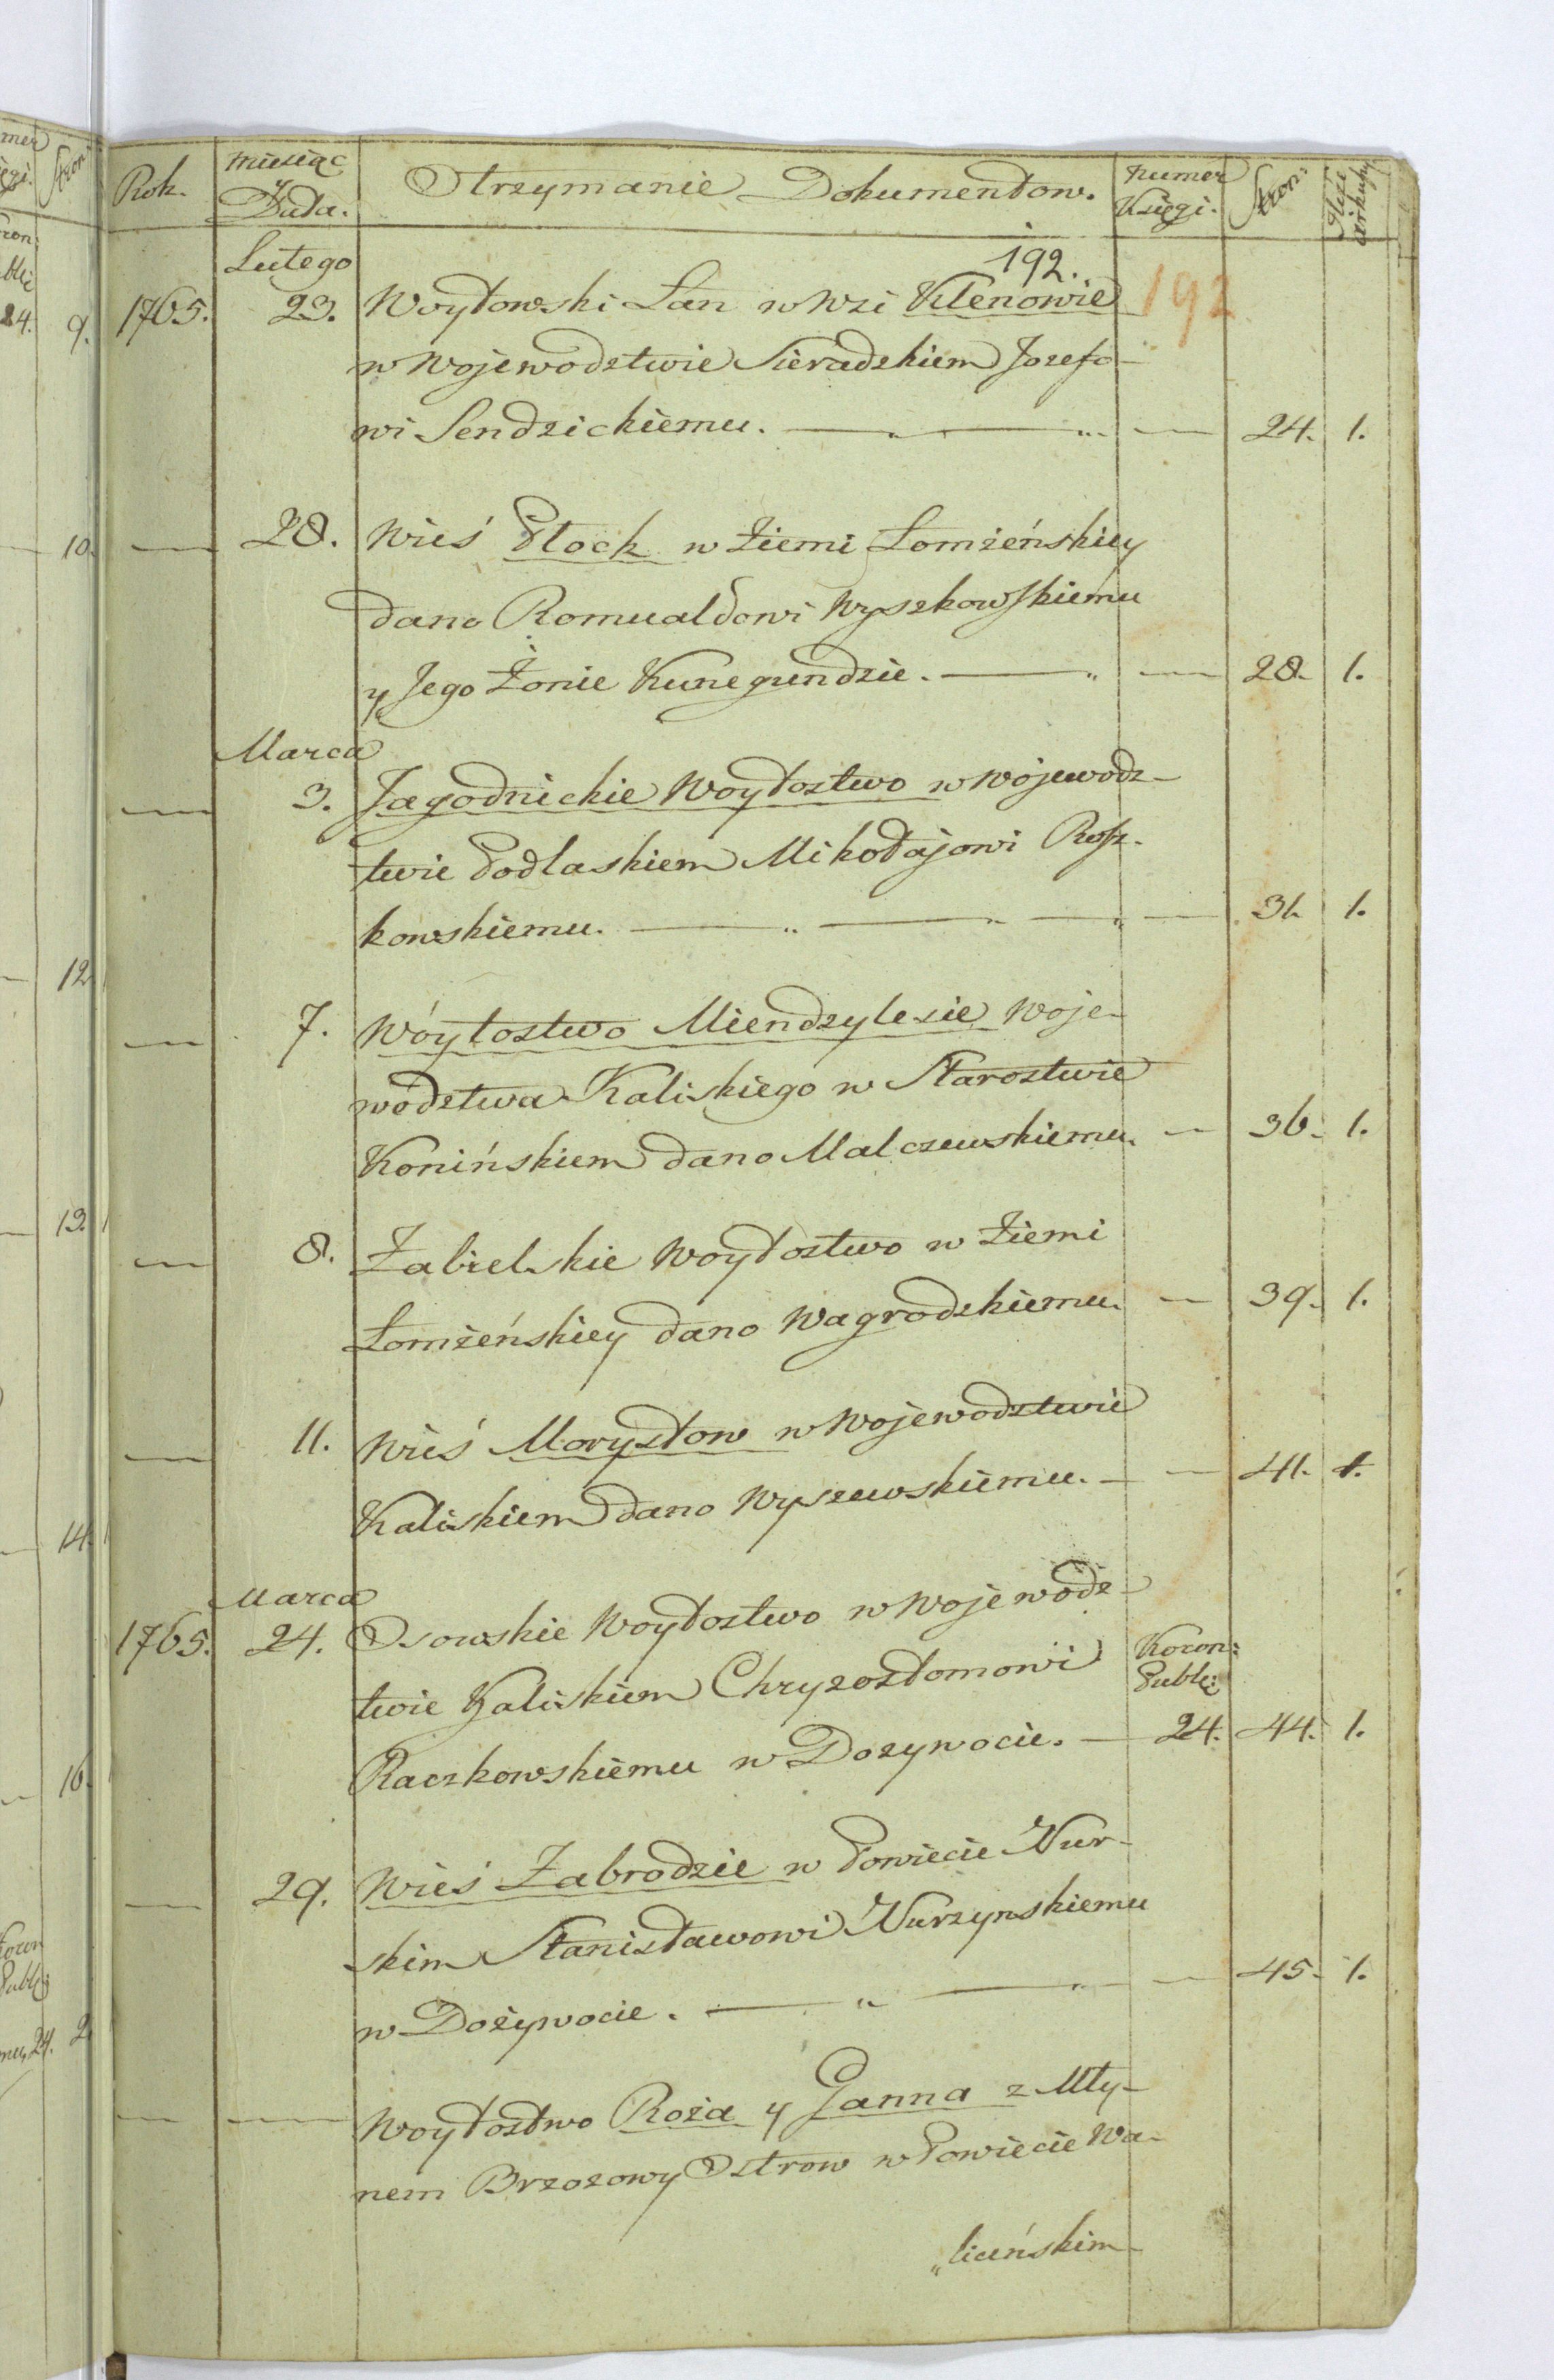 Rok. Miesiąc y Data. Otrzymanie Dokumentow. Numer Księgi. Stron:
192.
Lutego
1765. 23. Woytowski Łan w Wsi Klenowie 192
w Wojewodztwie Sieradzkiem Jozefo-
wi Sendzickiemu. — 24. 1.
— 28. Wieś Płock w Ziemi Łomżeńskiey
dano Romualdowi Wyszkowskiemu
y Jego Żonie Kunegundzie. — 28. 1.
Marca
— 3. Jagodnickie Woytostwo w Wojewodz-
twie Podlaskiem Mikołajowi Rosz-
kowskiemu. — 31. 1.
— 7. Wóytostwo Miendzylesie Woje-
wodztwa Kaliskiego w Starostwie
Konińskiem dano Malczewskiemu. — 36. 1.
— 8. Zabielskie Woytostwo w Ziemi
Łomżeńskiey dano Wagrodzkiemu. — 39. 1.
— 11. Wieś Morysłow w Wojewodztwie
Kaliskiem dano Wyszewskiemu. — 41. 1.
Marca
1765. 24. Osowskie Woytostwo w Wojewodz-
twie Kaliskiem Chryzostomowi Koron:
Publ:
Raczkowskiemu w Dozywocie. — 24. 44. 1.
— 29. Wieś Zabrodzie w Powiecie Nur-
skim Stanisławowi Nurzynskiemu
w Dożywocie. — 45. 1.
— — Woytostwo Roża y Ganna z Mły-
nem Brzozowy Ostrow w Powiecie Wa-
„liceńskim